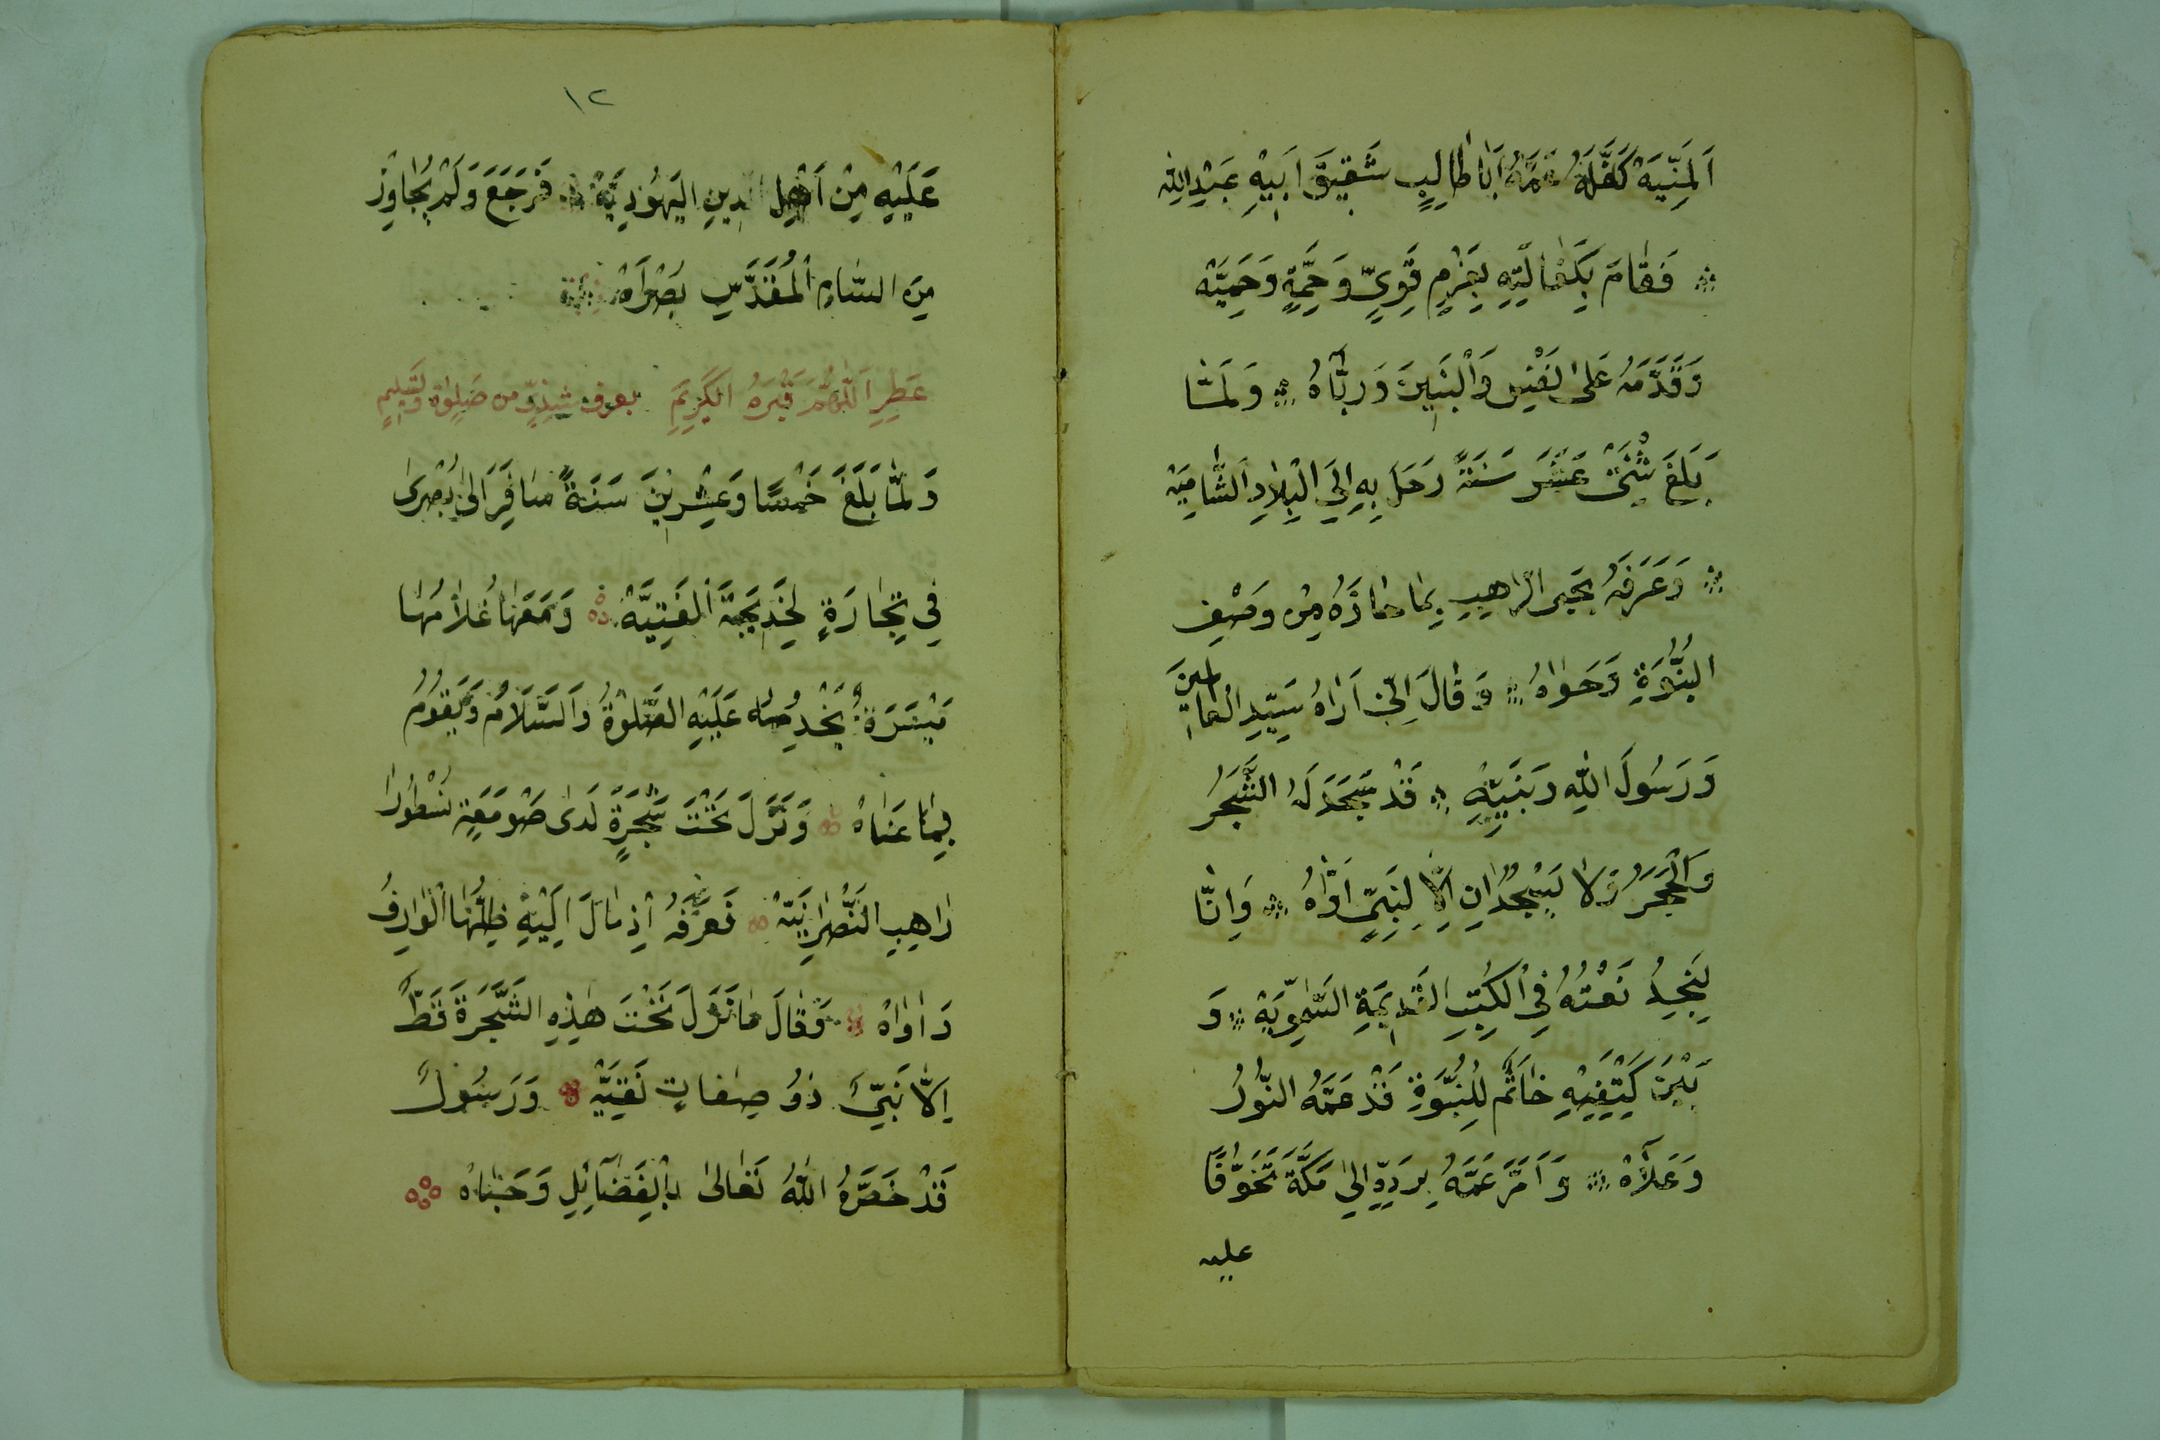 اَلْمَنِيَّةَ كَفَّلَهُ عَمَّهُ اَبَا طَالِبٍ شَقِيقَ اَبِيْهِ عَبْدِ اللّٰهِ
۞ فَقَامَ بِكَفَالَتِهِ بِعَزْمٍ قَوِيٍّ وَهِمَّةٍ وَحَمِيَّةْ
وَقَدَّمَهُ عَلَى النَّفْسِ وَالْبَنِينَ وَرَبَّاهُ ۞ وَلَمَّا
بَلَغَ ثْنَتَىْ عَشَرَ سَنَةً رَحَلَ بِهِ اِلَى الْبِلَادِ الشَّامِيَّةْ
۞ وَعَرَفَهُ بَحِير الرَّاهِبِ بِمَا حَازَهُ مِنْ وَصْفِ
النُّبُوَّةِ وَحَوَاهُ ۞ وَقَالَ اِنِّى اَرَاهُ سَيِّدِ الْعَالَمِينَ
وَرَسُولَ اللّٰهِ وَنَبِيَّهْ ۞ قَدْ سَجَدَ لَهُ الشَّجَرُ
وَالْحَجَرُ وَلَا يَسْجُدَانِ اِلَّا لِنَبِيٍّ اَوَّاهُ ۞ وَاِنَّا
لِنَجِدُ نَعْتُهُ فِي الْكُتُبِ الْقَدِيمَةِ السَّمٰوِيَّةْ ۞ وَ
بَيْنَ كَتِفَيْهِ خَاتَمٌ لِلنُّبُوَّةِ قَدْ عَمَّهُ النُّورُ
وَعَلَاَهْ ۞ وَاَمَرَ عَمَّهُ بِرَدِّهِ اِلٰى مَكَّةَ تَخَوُّفًا
عليه
١٢
عَلَيْهِ مِنْ اَهْلِ الدِينِ اليَهُودِيَّةْ ۞ فَرَجَعَ وَلَمْ يُجَاوِزْ
مِنَ الشَّامِ الْمُقَدَّسِ بُصْرَاهْ ۞
عَطِّرِ اَللّٰهُمَّ قَبْرَهُ الكَرِيمَ بعرف شذيٍّ من صَلٰوةٍ وَتَسْلِيمٍ
وَلَمَّا بَلَغَ خَمْسًا وَعِشْرِينَ سَنَةً سَافَرَ اِلٰى بُصْرٰى
فِي تِجَارَةٍ لِخَدِيجَةَ الْفَتِيَّةْ ۞ وَمَعَهَا غُلَامُهَا
مَيْسَرَةُ يَخْدِمُه عَلَيْهِ الصَّلٰوةُ وَالسَّلَامُ وَيَقُومُ
بِمَا عَنَاهْ ۞ وَنَزَلَ تَحْتَ شَجَرَةٍ لَدٰى صَوْمَعَةِ نَسْطُورَا
رَاهِبِ النَّصْرَانِيَّةْ ۞ فَعَرَّفَهُ اِذْ مَالَ اِلَيْهِ ظِلُّهَا الْوَارِفُ
وَاٰوَاهْ ۞ وَقَالَ مَا نَزَلَ تَحْتَ هٰذِهِ الشَّجَرَةَ قَطُّ
اِلَّا نَبِيٌّ ذُو صِفَاتٍ نَقِيَّهْ ۞ وَرَسُولٌ
قَدْ خَصَّهُ اللّٰهُ تَعَالٰى بِالْفَضَآئِلِ وَحَبَاهُ ۞